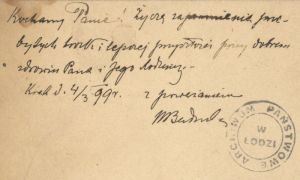 Kochany Panie! Życzę zapomnienia prze-
bytych trosk i lepszej przyszłości przy dobrem
zdrowiu Pana i Jego Rodziny.
Krak d. 4/3 99 r. z poważaniem
ARCHIWUM PAŃSTWOWE
W
ŁODZI